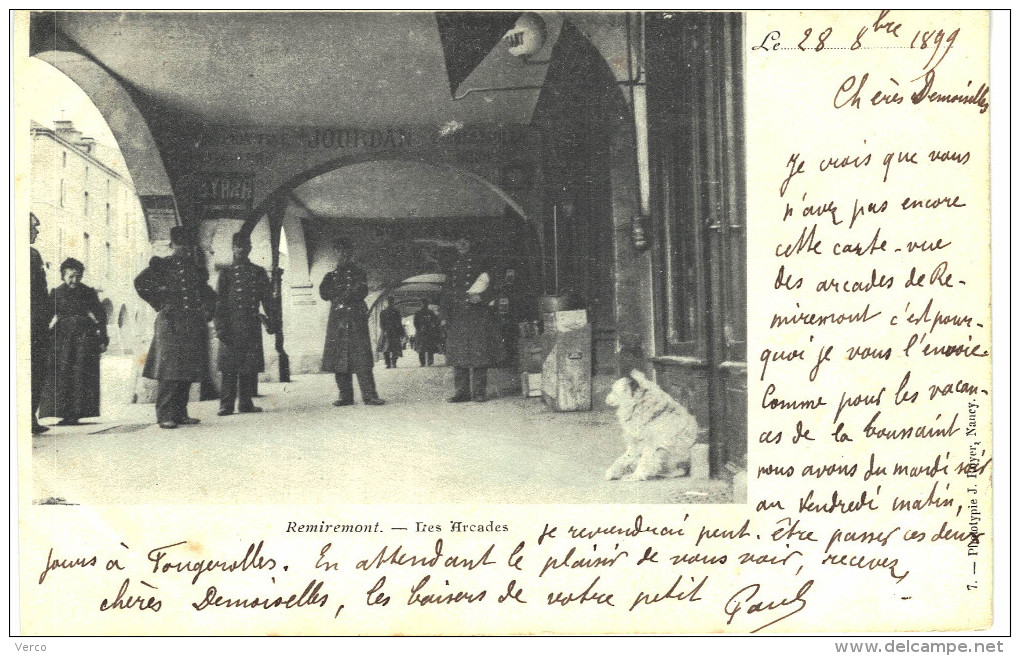 Le 28 8bre 1899
Chères Demoiselles
Je crois que vous
n'avez pas encore
cette carte-vue
des arcades de Re-
miremont c'est pour-
quoi je vous l'envoie.
Comme pour les vacan-
ces de la Toussaint
nous avons du mardi soir
au Vendredi matin,
je reviendrai peut-être passer ces deux
jours à Fougerolles. En attendant le plaisir de vous voir, recevez,
chères Demoiselles, les baisers de votre petit Paul
JOURDAN
Remiremont. — Les Arcades
7. — Phototypie J. Royer, Nancy.
Verco
www.delcampe.net